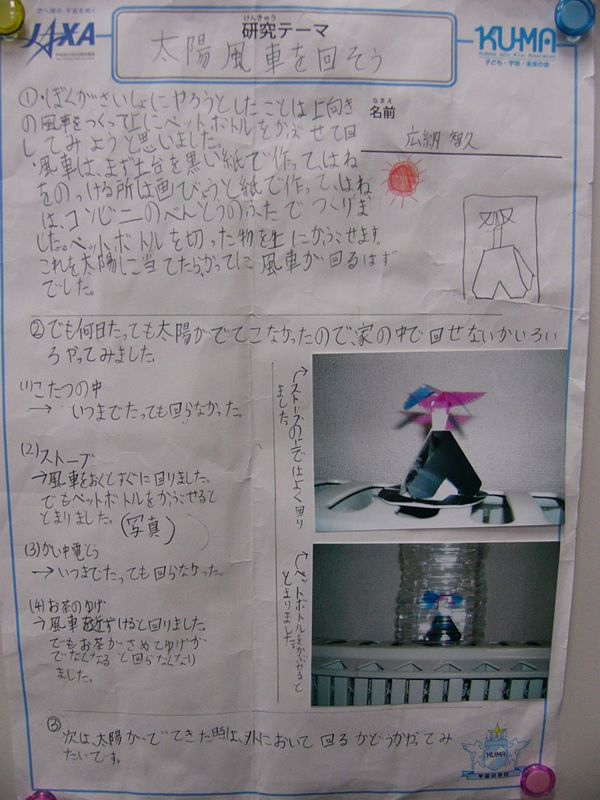 JAXA
けんきゅう
研究テーマ
太陽風車を回そう
KU-MA
子ども・宇宙・未来の会
なまえ
名前
広納 智久
①・ぼくがさいしょにやろうとしたことは上向き
の風車をつくって上にペットボトルをかぶせて回
してみようと思いました。
・風車は、まず土台を黒い紙で作って、はね
をのっける所は画びょうと紙で作って、はね
は、コンビニのべんとうのふたでつくりま
した。ペットボトルを切った物を上にかぶせます。
これを太陽に当てたら、かってに風車が回るはず
でした。
②でも何日たっても太陽がでてこなかったので、家の中で回せないかいろい
ろやってみました。
(1)こたつの中
→いつまでたっても回らなかった。
(2)ストーブ
→風車をおくとすぐに回りました。
でもペットボトルをかぶせると
とまりました。(写真)
(3)かい中電とう
→いつまでたっても回らなかった。
(4)お茶のゆげ
→風車を近ずけると回りました。
でもお茶がさめてゆげが
でなくなると回らなくなり
ました。
←ストーブの上ではよく回り
ました。
←ペットボトルをかぶせると
とまりました。
③次は、太陽がでてきた時は、外において回るかどうかやってみ
たいです。
KU-MA
宇宙の学校